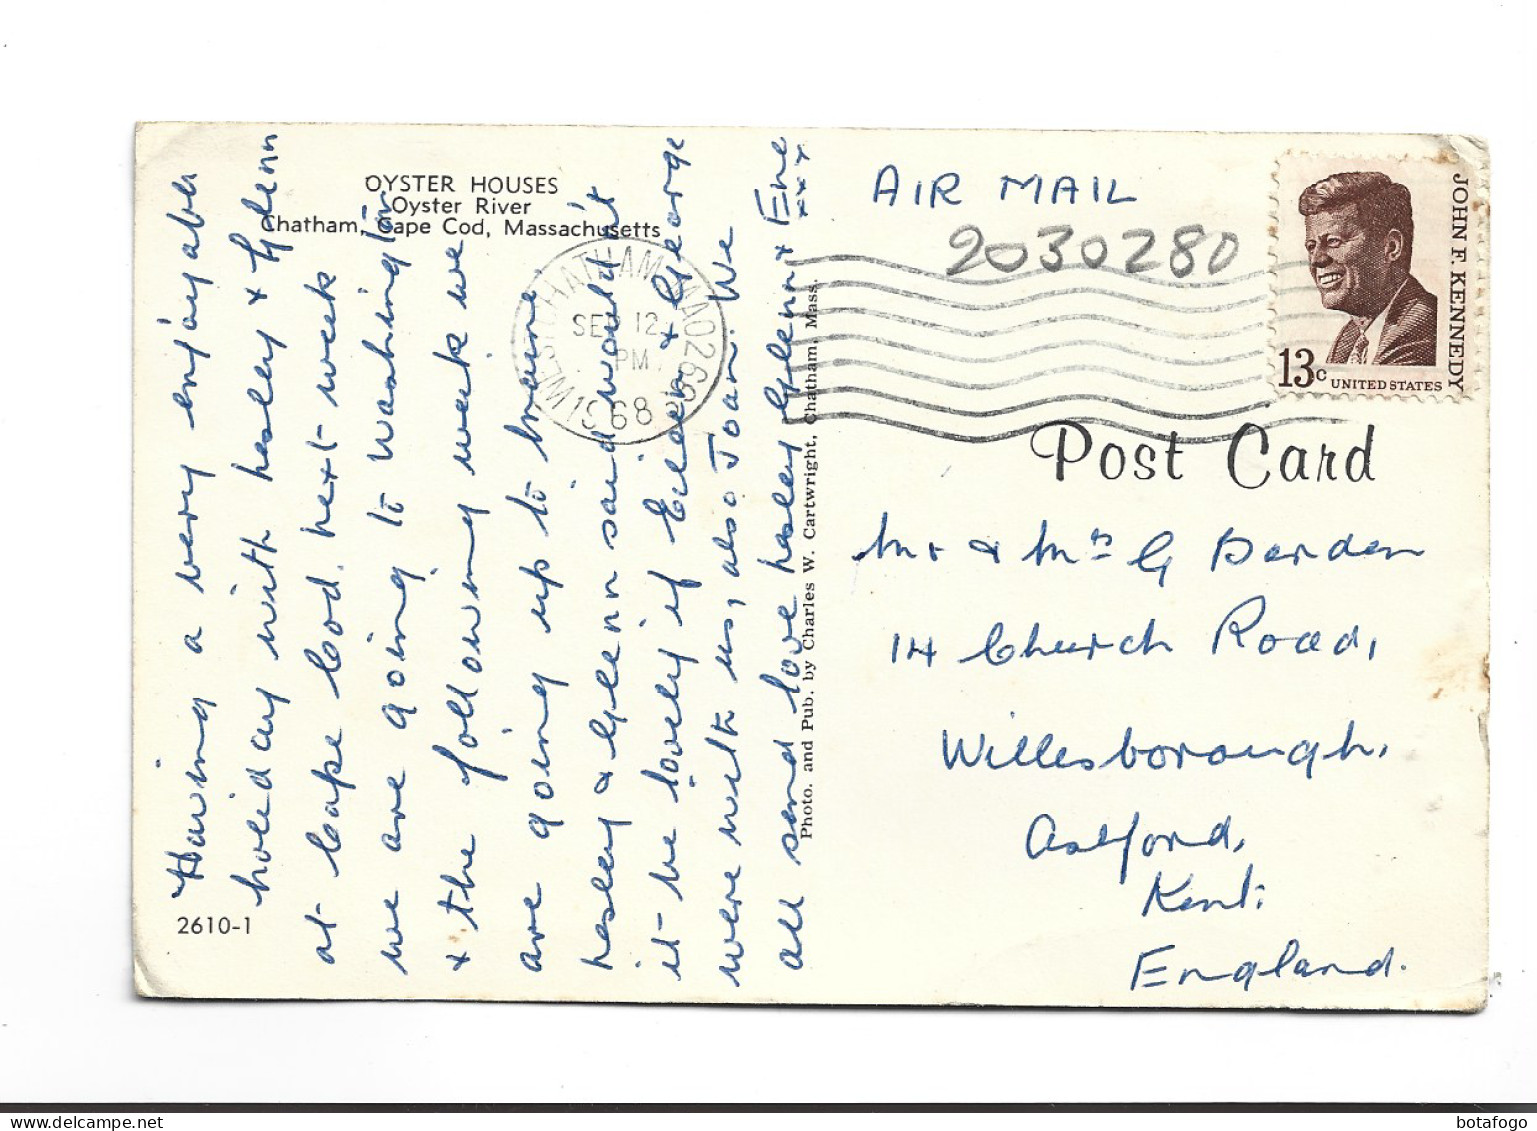 OYSTER HOUSES
Oyster River
Chatham, Cape Cod, Massachusetts
Having a very enjoyable
holiday with Lesley & Glenn
at Cape Cod. Next week
we are going to Washington
& the following week we
are going up to Maine
Lesley & Glenn said wouldn't
it be lovely if Eileen & George
were with us, also Joan. We
all send love Lesley Glenn &
xxx
2610-1
Photo. and Pub. by Charles W. Cartwright, Chatham, Mass.
WEST CHATHAM MA 02669
SEP 12
PM
1968
AIR MAIL
2030280
JOHN F. KENNEDY
13c UNITED STATES
Post Card
Mr & Mrs G Darden
14 Church Road,
Willesborough,
Ashford,
Kent.
England.
botafogo